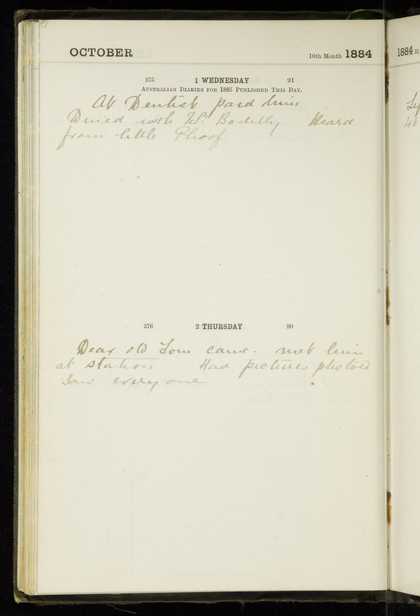 OCTOBER 10th Month 1884
275 1 WEDNESDAY 91
AUSTRALIAN DIARIES FOR 1885 PUBLISHED THIS DAY.
At Dentist paid him
Dined with Heard
from little
276 2 THURSDAY 90
Dear old Tom came. met him
at station Had pictures photoed
Saw every one
1884